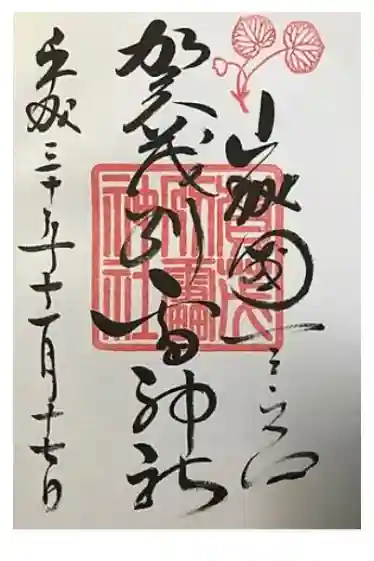 山城國一之宮
賀茂別雷神社
平成三十年十一月十七日
賀茂
別雷
神社